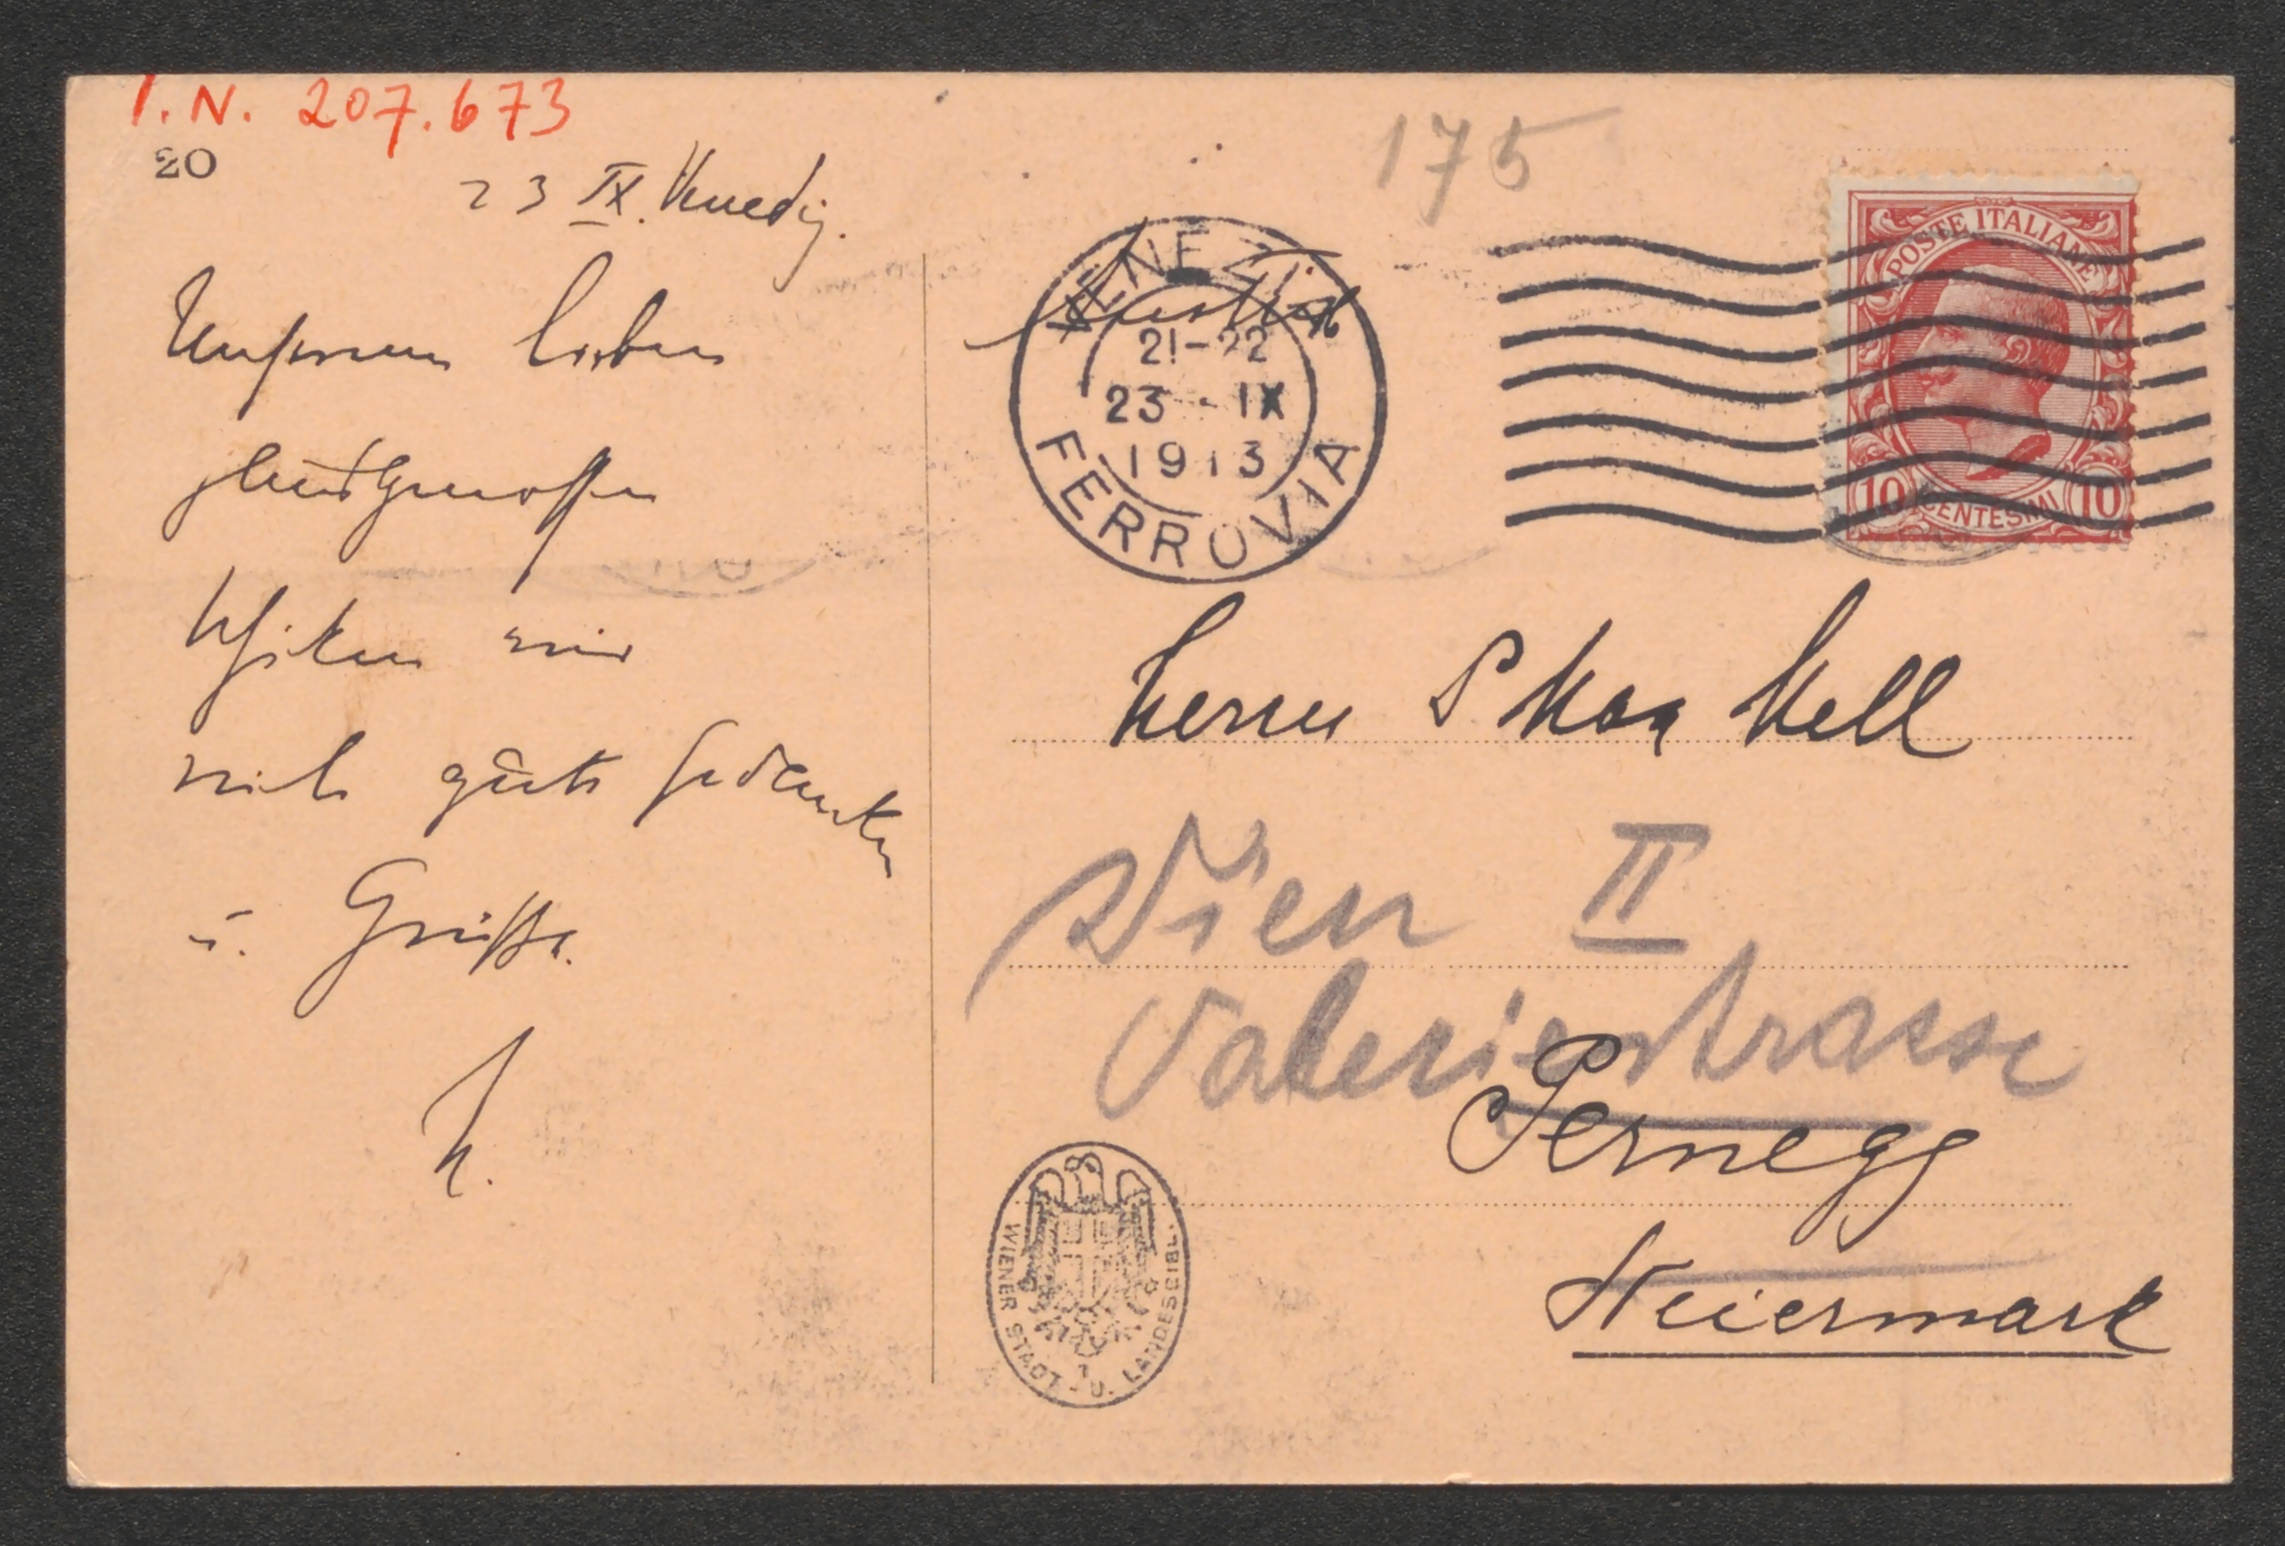 I.N. 207.673
20
175
23 IX. Venedig.
Unserem lieben
schicken wir
viele gute Gedanken
u. Grüsse.
H.
POSTE ITALIANE
10 CENTESIMI 10
VENEZIA
Austria
21-22
23-IX
1913
FERROVIA
Herrn D Max Mell
Wien II
Valeriestrasse
Pernegg
Steiermark
WIENER STADT- U. LANDESBIBL.